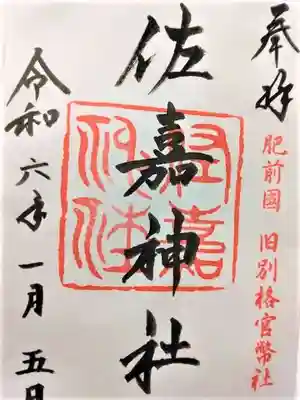 奉拝
肥前國 旧別格官幣社
佐嘉神社
令和六年一月五日